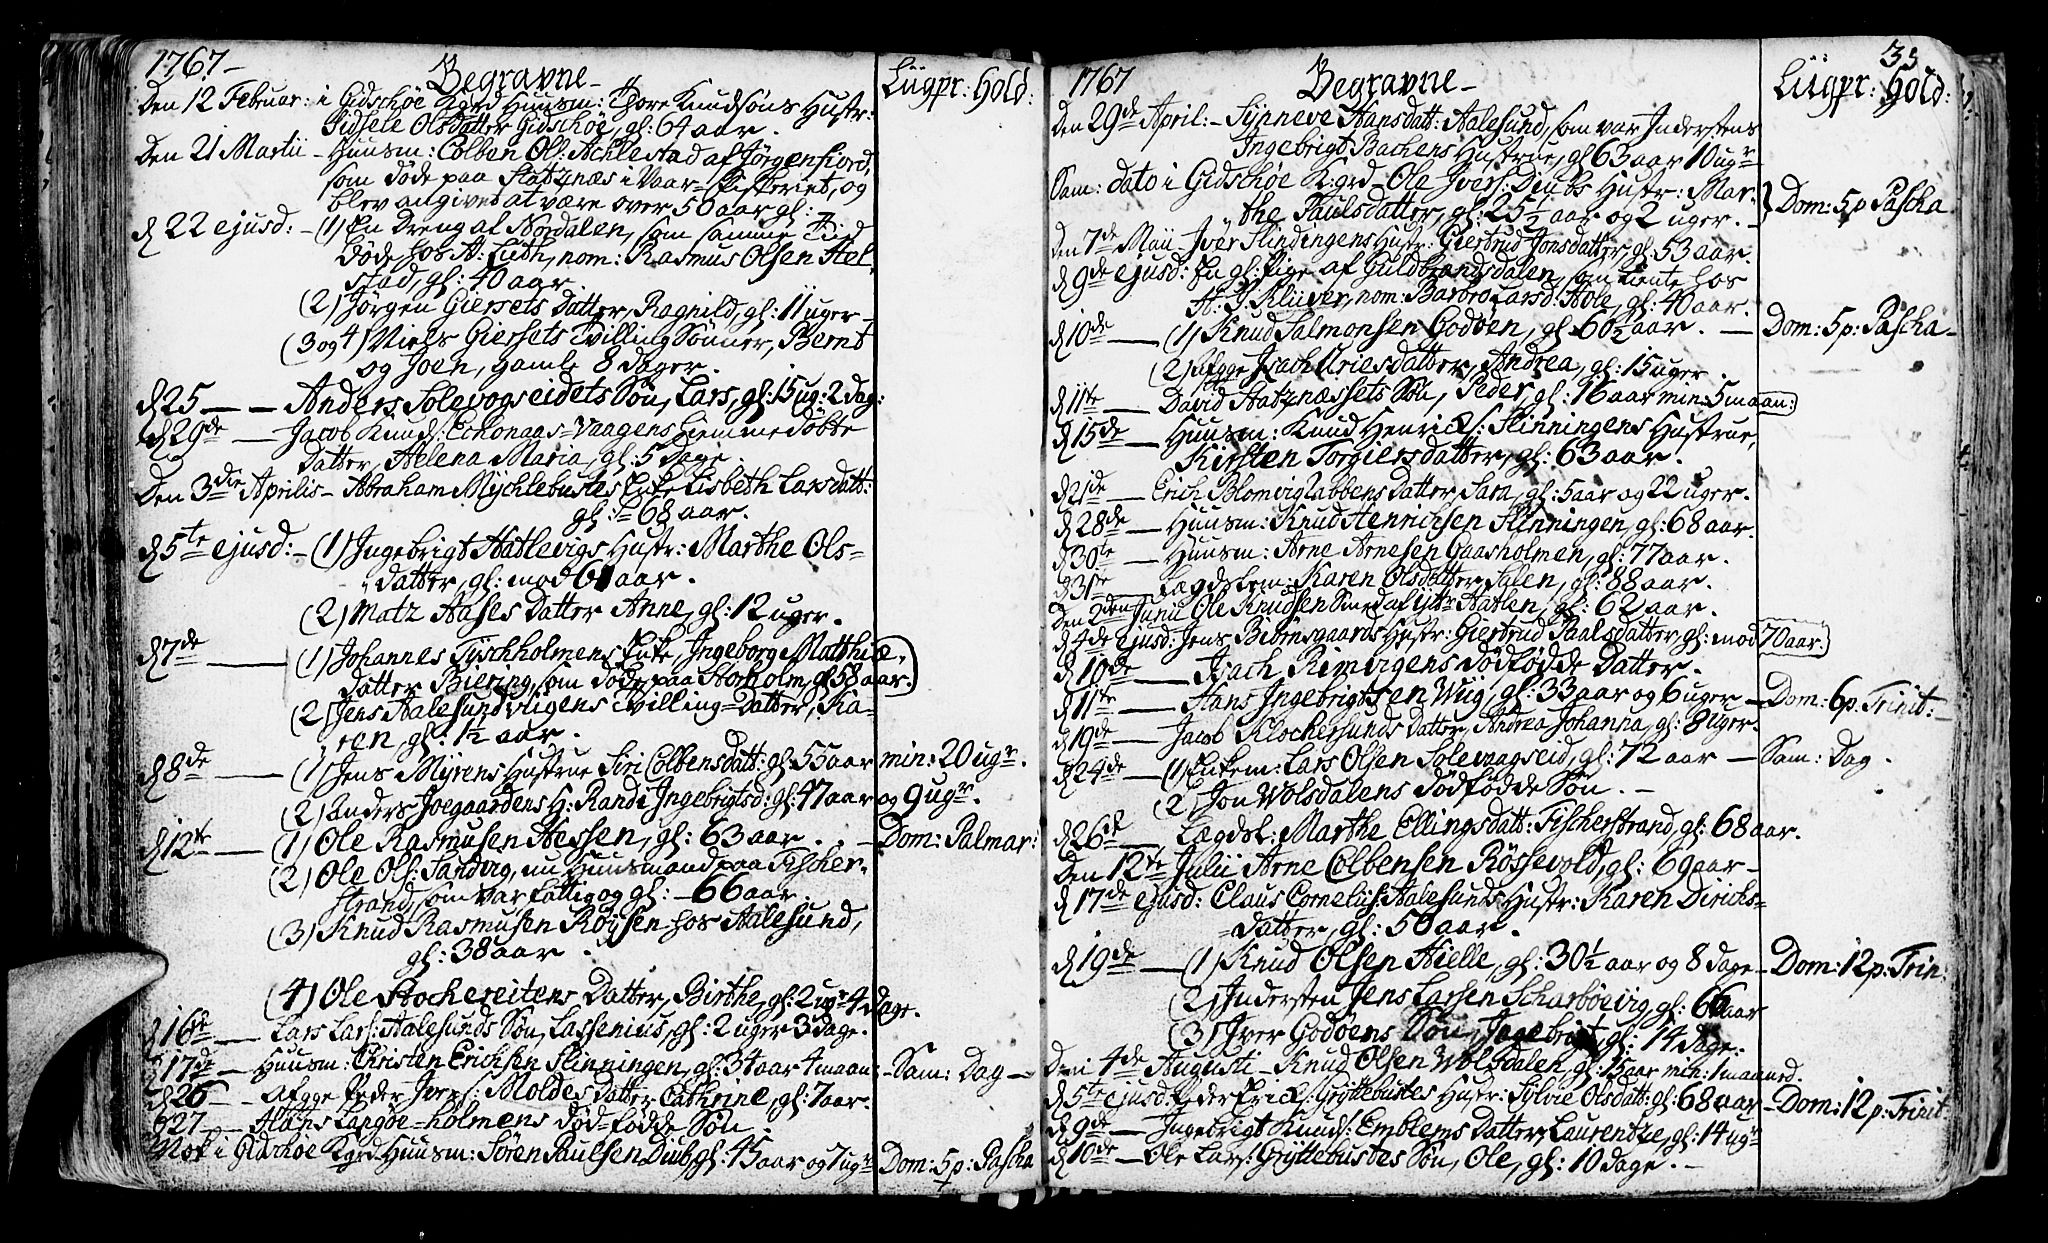 1767 -
Begravne -
Liigpr: hold:
Den 12 Februar: i Gidschöe K:grd Huusm: Thore Knudsöns Hustr:
Sidsele Olsdatter Gidschöe, gl: 64 aar.
Den 21 Martii - Huusm: Colben Ol: Achlestad af Jörgenfiord,
som döde paa Statznæs i Vaar-fiskeriet, og
blev angivet at være over 50 aar gl:
d 22 ejusd: - (1) En Dreng af Nordalen, som samme Tid
döde, hos A: Luth, nom: Rasmus Olsen Hel-
stad, gl: 40 aar.
(2) Jörgen Giersets Datter, Ragnild, gl: 11 uger -
(3 og 4) Niels Giersets Tvilling Sönner, Bernt
og Joen, gamle 8 dager.
d 25 - - Anders Solevogseidets Sön, Lars, gl: 15 ug: 2 dag:
d 29de - Jacob Knuds: Echonaas-Vaagens hiemmedöbte
Datter, Helena Maria, gl: 5 dage.
Den 3die Aprilis - Abraham Mychlebustes Enke Lisbeth Larsdatt:
gl: 68 aar.
d 5te ejusd: - (1) Ingebrigt Hatlevigs Hustr: Marthe Ols-
datter, gl: mod 61 aar.
(2) Matz Aases Datter Anne, gl: 12 uger.
d 7de - (1) Johannes Tyschholmens Enke, Ingeborg Matthiæ-
datter Biering, som döde paa Storholm, gl 58 aar.
(2) Jens Aalesundvigens Tvilling-Datter, Ka-
ren, gl: 1½ aar.
d 8de - (1) Jens Myrens Hustrue Siri Colbensdatt: gl: 55 aar min: 20 ugr.
(2) Anders Joegaardens H: Randi Ingebrigtsd: gl: 47 aar og 9 ugr.
d 12te - (1) Ole Rasmusen Hessen, gl: 63 aar. - Dom: Palmar:
(2) Ole Ols: Sandvig, nu Huusmand paa Fischer-
strand, som var fattig og gl: - 66 aar.
(3) Knud Rasmusen Röysen hos Aalesund,
gl: 38 aar.
(4) Ole Stochereitens Datter, Birthe, gl: 2 ugr 4 dage.
d 16de - Lars Lars: Aalesunds Sön, Lassenius, gl: 2 uger 3 dage.
d 17de - Huusm: Christen Erichsen Slinningen, gl: 34 aar 4 maan: - Sam: Dag -
d 26 - Afgge Peder Ivers: Moldes Datter Cathrine, gl: 7 aar.
d 27 - Hans Langöe-holmens död-födde Sön.
Nok i Gidschöe K:grd Huusm: Sören Paulsen Diub, gl: 45 aar og 7 ugr Dom: 5 p: Pascha
1767
Begravne -
Liigpr: hold:
35
Den 29de April: - Synneve Hansdatt: Aalesund, som var Indersten
Ingebrigt Bachens Hustrue, gl 63 aar 10 ugr
Sam: dato i Gidschöe K:grd Ole Ivers: Diubs Hustr: Mar-
the Paulsdatter, gl: 25½ aar og 2 uger. - Dom: 5 p Pascha
Den 7de Maii - Iver Slindingens Hustr: Giertrud Jonsdatter, gl: 53 aar.
d 9de ejusd: En gl: Pige af Guldbrandsdalen, som tiente hos
H: J: Klüver, nom: Barbro Larsd: Hole, gl: 40 aar.
d 10de - (1) Knud Salmonsen Godöen, gl: 60½ aar. - Dom: 5 p: Pascha -
(2) Afgge Isach Uriesdatter, Andrea, gl: 15 uger.
d 11te - David Statznæssets Sön, Peder, gl: 16 aar min 5 maan:
d 15de - Huusm: Knud Henrichs: Slinningens Hustrue,
Kirsten Torgiersdatter, gl: 63 aar.
d 21de - Erich Blomvig Labbens Datter Sara, gl: 5 aar og 22 uger.
d 28de - Huusm: Knud Henrichsen Slinningen, gl: 68 aar.
d 30te - Huusm: Arne Arnesen Gaasholmen, gl: 77 aar.
d 31te - Lægdslem: Karen Olsdatter Salen, gl: 88 aar.
Den 2den Junii Ole Knudsen Smed af ytre Hatlen, gl: 62 aar.
d 4de ejusd: Jens Biörnsgaards Hustr: Giertrud Paalsdatter gl: mod 70 aar.
d 10de - Isach Rimvigens dödfödde Datter.
d 11te - Hans Ingebrigtsen Wiig, gl: 33 aar og 6 uger - Dom: 6 p: Trinit: -
d 19de - Jacob Klochersunds Datter, Andrea Johanna, gl: 8 uger.
d 24de - (1) Enkem: Lars Olsen Solevaagseid, gl: 72 aar - Sam: Dag.
(2) Jon Wolsdalens dödfödde Sön. -
d 26de - Lægdsl: Marthe Ellingsdatt: Fischerstrand, gl: 68 aar.
Den 12te Julii Arne Colbensen Rössevold, gl: 69 aar -
d 17de ejusd: Claus Cornelius: Aalesunds Hustr: Karen Dirichs-
datter, gl: 50 aar.
d 19de - (1) Knud Olsen Hielle, gl: 30½ aar og 8 dage - Dom: 12 p: Trin:
(2) Indersten Jens Larsen Scharböevig, gl: 66 aar
(3) Iver Godöens Sön, Ingebrigt, gl: 14 dage.
Den 4de Augusti - Knud Olsen Wolsdalen, gl: 15 aar min: 1 maaned.
d 5te ejusd. Peder Erichs: Gryttebustes Hustr: Sylvie Olsdatt: gl: 68 aar - Dom: 12 p: Trinit:
d 9de - Ingebrigt Knuds: Emblems Datter, Laurentze, gl: 14 ugr
d 10de - Ole Lars: Gryttebustes Sön, Ole, gl: 10 dage. -